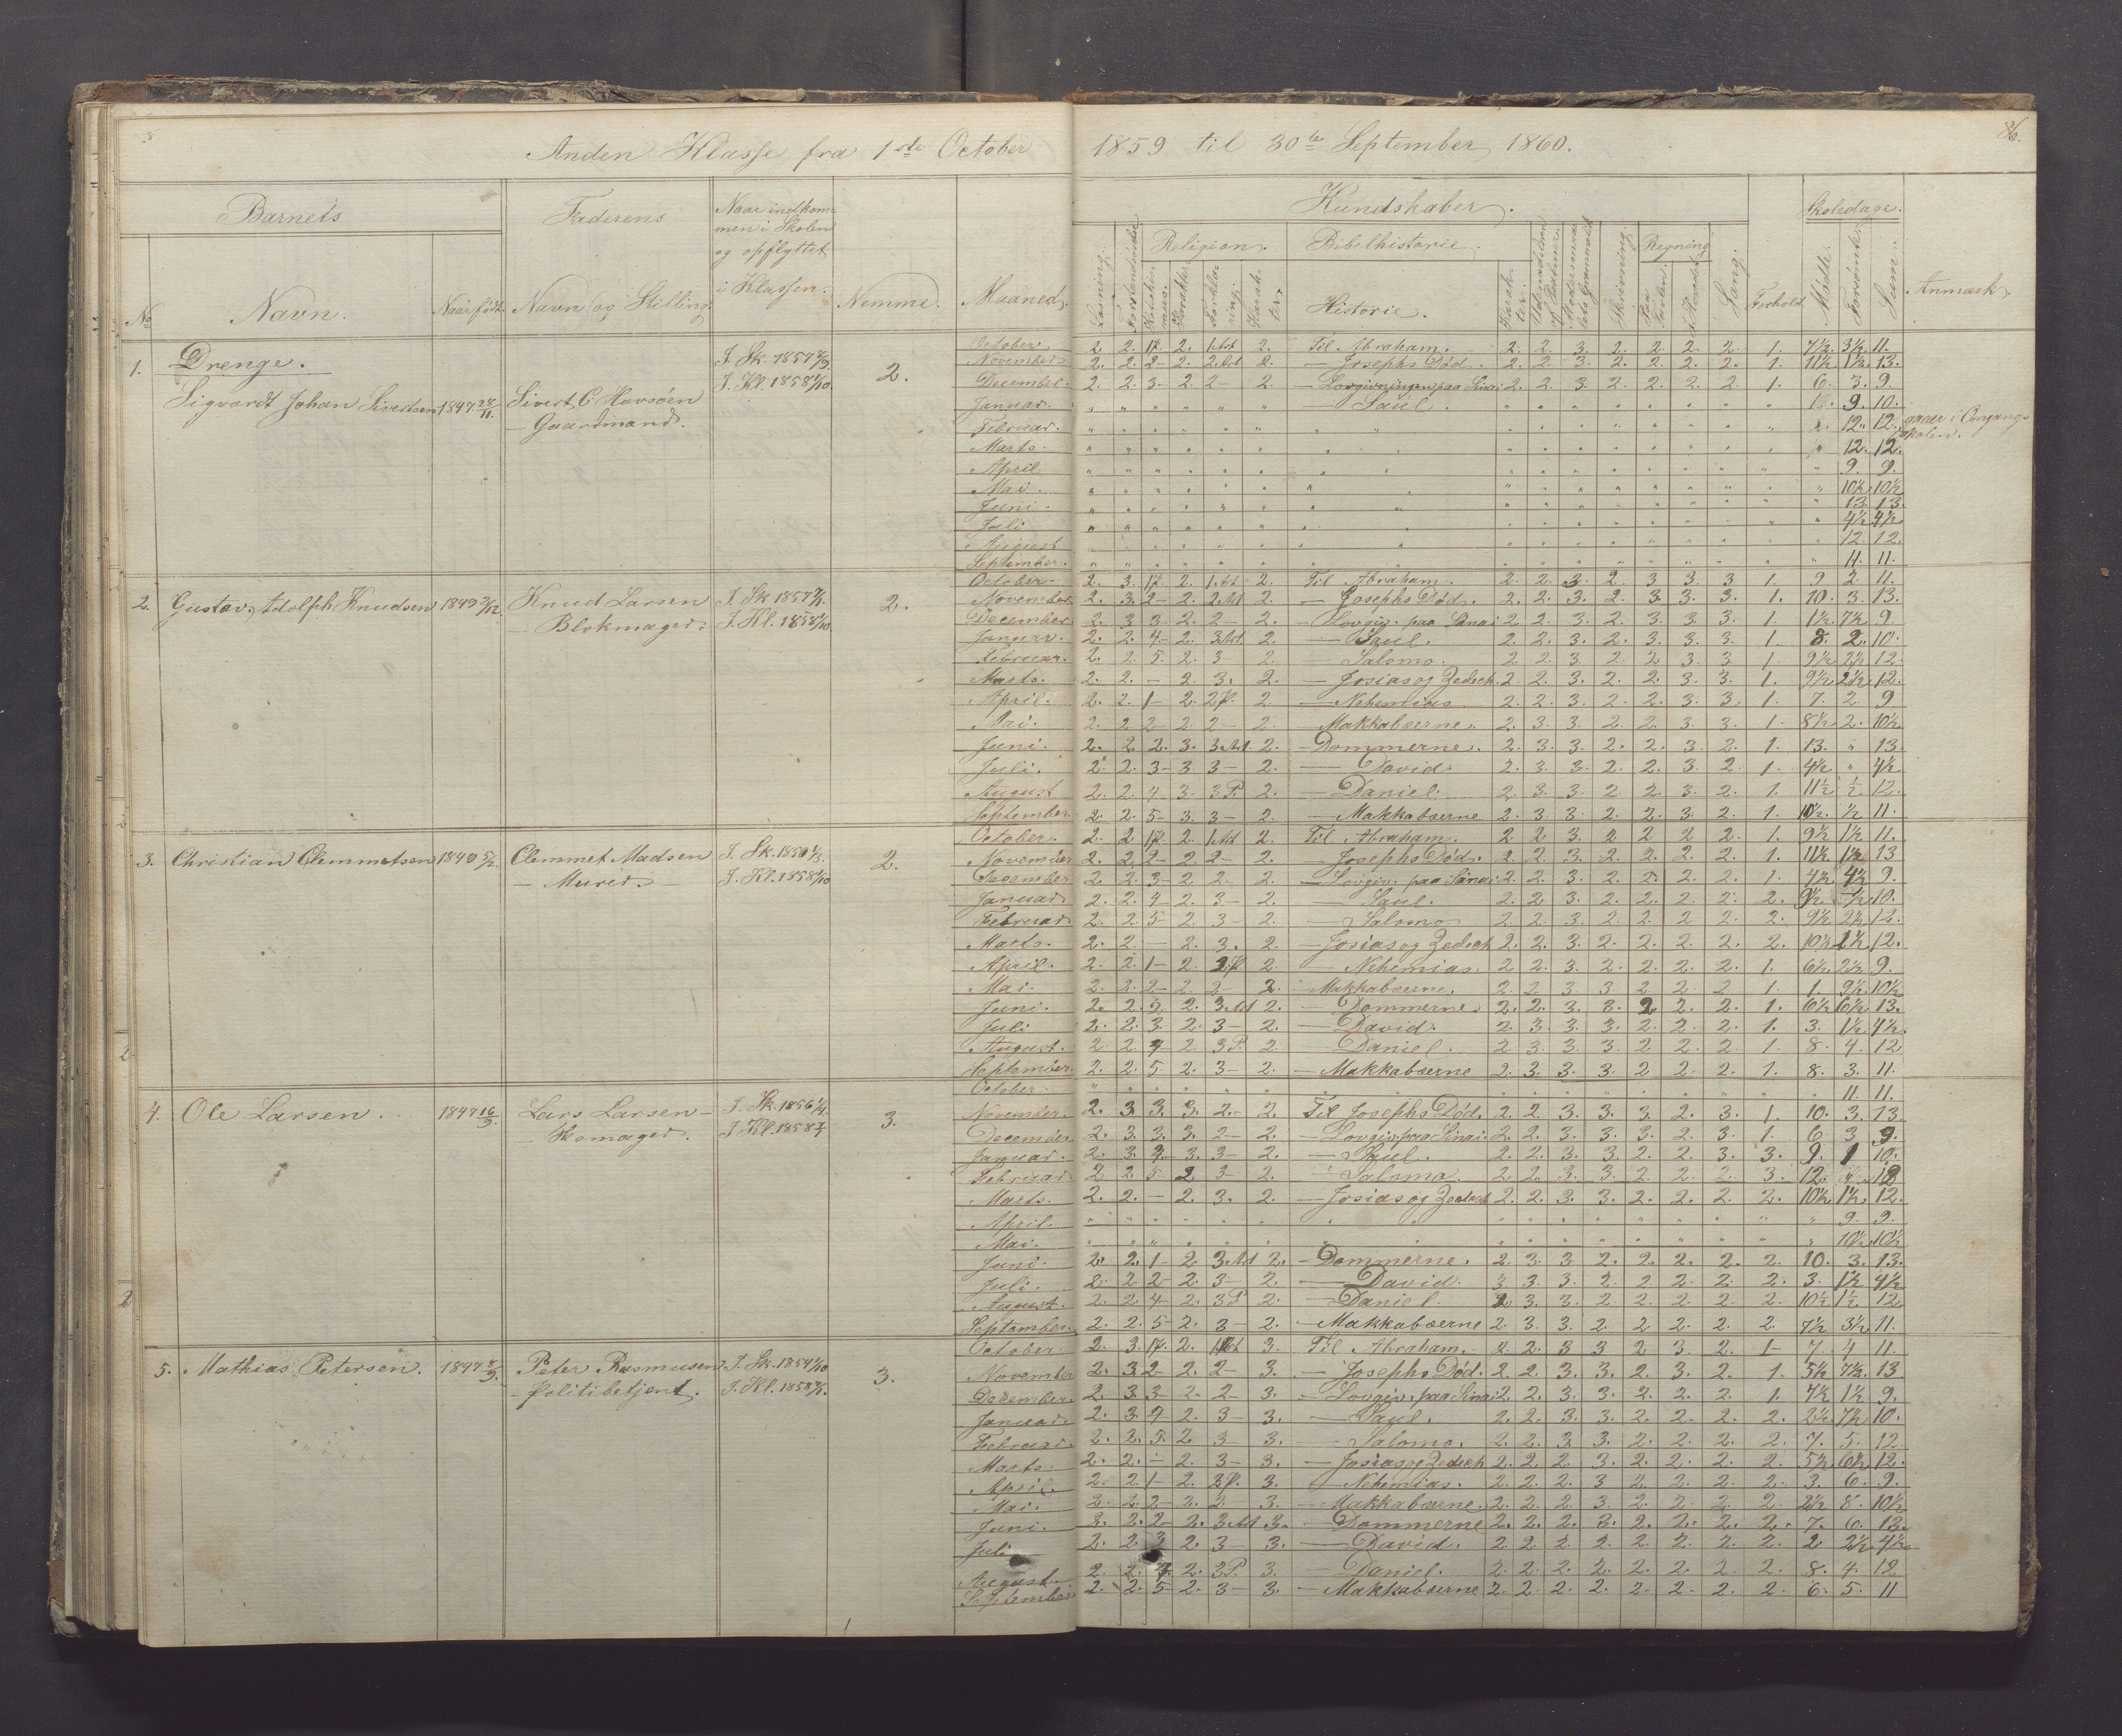 Anden Klasse fra 1ste October 1859 til 30te September 1860.
86.
Barnets
Faderens
Naar indkom-
men i Skolen
og opflyttet
i Klassen.
Kundskaber.
Skoledage.
Religion. Bibelhistorie. Regning
No Navn. Naar født. Navn og Stilling. Nemme. Maaned. Læsning. Historie. Skrivning. Sang. Forhold Mødte. Forsømte. Sum. Anmærk.
1. Drenge.
Sigvardt Johan Sivertsen 1847 28/11. Sivert C Havsöen
— Gaardmand.
I. Kl. 1858 1/10 2.
October. 2. 2. 2. 2. Til Abraham. 2. 2. 3. 2. 2. 2. 2. 1. 7½ 3½ 11.
November 2. 2. 2 - 2. 2. — Josephs Död. 2. 2. 3. 2. 2. 2. 2. 1. 11½ 1½ 13.
December. 2. 2. 3 - 2. 2 - 2. — Lovgivningen paa Sinai 2. 2. 3. 2. 2. 2. 2. 1. 6. 3. 9.
Januar. — Saul. 9. 10.
Februar. 12. 12. gaaer i Omgangs
skolen.
Marts. 12. 12.
April 9. 9.
Mai. 10½ 10½
Juni. 13. 13.
Juli 4½ 4½
August 12. 12.
September. 11. 11.
2. Gustav Adolph Knudsen 1849 Knud Larsen
— Blokmager.
I. Kl. 1858 1/10 2.
October. 2. 3. 2. 2. Til Abraham. 2. 2. 3. 2. 3 3. 3 1. 9 2. 11.
November 2. 3. 2 - 2. 2. — Josephs Död. 2. 2. 3. 2. 3. 3. 3. 1. 10. 3. 13.
December 2. 3 3 - 2. 2 - 2. — Lovgiv. paa Sinai 2. 2. 3. 2. 3. 3. 3. 1. 1½ 7½ 9.
Januar. 2. 2. 4 - 2. 2. — Saul. 2. 2. 3. 2. 3. 3. 3. 1. 8. 2. 10.
Februar. 2. 2. 5. 2. 3 2. — Salomo. 2. 2. 3. 2. 2 3. 3. 1. 9½ 2½ 12.
Marts. 2. 2. — 2. 3. 2. — Josias og Zedech. 2. 2. 3. 2. 2. 3. 3. 1. 9½ 2½ 12.
April. 2. 2. 1 - 2. 2 — Nehemias 2. 2. 3. 2. 2. 3. 3. 1. 7. 2. 9
Mai. 2. 2 2 - 2. 2 - 2. — Makkabæerne. 2. 3. 3. 2. 2 3. 3. 1. 8½ 2. 10½
Juni. 2. 2. 2. 3. 2. — Dommerne. 2. 3. 3. 2. 2. 3. 2. 1. 13. " 13.
Juli. 2. 2. 3 - 3. 3 - 2. — David. 2. 3. 3. 2. 2. 3. 2. 1. 4½ " 4½
August 2. 2. 4 3. 3 P. 2. — Daniel. 2. 3. 3. 2 2 3. 2. 1. 11½ ½ 12.
September 2. 2 5 - 3. 3 - 2. — Makkabæerne 2. 3. 3. 2. 2. 3. 2. 1. 10½ ½ 11.
3. Christian Clemmetsen Clemmet Madsen
— Murer —
I. Kl. 1858 1/10 2.
October. 2. 2 2. 2. Til Abraham. 2 2 3. 2 2 2. 2. 1. 9½ 1½ 11.
November 2. 2. 2 - 2. 2 - 2. — Josephs Död. 2. 2. 3. 2. 2. 2. 2. 1. 11½ 1½ 13
December 2. 2. 3 - 2. 2 - 2. — Lovgiv. paa Sinai 2. 2. 3. 2. 2. 2. 2. 1. 4½ 4½ 9.
Januar 2. 2. 4 - 2. 3 - 2. — Saul. 2. 2. 3. 2. 2. 2. 2. 2. 9½ ½ 10.
Februar 2. 2. 5 - 2. 3 - 2. — Salomo 2. 2. 3. 2. 2. 2. 2. 2. 9½ 2½ 12.
Marts. 2. 2. — 2. 3. 2. — Josias og Zedech 2. 2. 3. 2. 2. 2. 2. 2. 10½ 1½ 12.
April. 2. 2. 1 - 2. 2. — Nehemias. 2. 2. 3. 2. 2. 2. 2. 1. 6½ 2½ 9.
Mai. 2. 2. 2 - 2. 2 - 2. — Makkabæerne. 2. 2. 3. 3 2 2 2 1. 1. 9½ 10½
Juni. 2. 2. 2. 2. — Dommerne. 2. 2. 3. 3. 2. 2. 2. 1. 6½ 6½ 13.
Juli 2. 2. 3 2. 3 - 2. — David. 2. 3. 3. 3. 2. 2. 2. 1. 3. 1½ 4½
August. 2. 2. 4 - 2. 3 P. 2. — Daniel. 2. 3. 3. 3. 2 2. 2. 1. 8. 4. 12
September. 2. 2. 5 2. 3 - 2. — Makkabæerne 2. 3. 3. 3. 2 2. 2. 1. 8. 3. 11.
4. Ole Larsen. 1847 16/9. Lars Larsen —
— Skomager.
3.
October. 11. 11.
November. 2. 3 3. 3. 2. - 2. Til Josephs Död. 2. 2 3. 3. 3. 2. 3. 1. 10. 3. 13
December 2. 3. 3. 3. 2 - 2. — Lovgiv. paa Sinai. 2. 2. 3. 3. 3. 2. 3. 1. 6 3 9.
Januar. 2. 3. 4. 3. 3 - 2. — Saul. 2. 2. 3. 3. 2. 2. 3. 3. 9. 1 10.
Februar. 2 2 5 2 3 - 2. — Salomo. 2. 2. 3. 3. 2. 2. 2. 3. 12. " 12
Marts. 2. 2. — 2. 3. 2. — Josias og Zedech 2. 2. 3. 3. 2. 2. 2. 2. 10½ 1½ 12.
April. 9. 9.
Mai. 10½ 10½
Juni. 2. 2. 1 - 2 2. — Dommerne. 2. 3. 3. 2. 2. 2. 2. 2. 10. 3. 13.
Juli. 2. 2 2 - 2. 3 - 2. — David. 3. 3. 3. 2. 2. 2. 2. 2. 3. 1½ 4½
August. 2. 2. 4 - 2. 3 P 2. — Daniel. 3. 3. 2. 2. 2. 2. 2. 10½ 1½ 12.
September. 2. 2. 5 - 2. 3 - 2. — Makkabæerne 2. 3. 3. 2. 2. 2. 2. 2 7½ 3½ 11.
5. Mathias Petersen. Peter Rasmusen
— Politibetjent.
3.
October. 2. 3. 2. 3. Til Abraham. 2. 2. 3 3 2 3. 2. 1 - 7. 4 11.
November 2. 3 2 - 2. 2 - 3. — Josephs Död. 2. 2. 3. 3. 2. 3. 2. 1. 5½ 7½ 13
December. 2. 3 3 - 2. 2 - 3. — Lovgiv. paa Sinai 2. 2. 3. 3. 2. 2. 2. 1. 7½ 1½ 9.
Januar. 2. 3. 4 - 2. 3 - 3. — Saul. 2. 2. 3. 3. 2. 2. 2. 2. 2½ 7½ 10.
Februar. 2. 2. 5. 2 3 - 3. — Salomo. 2. 2. 3. 3. 2. 2. 2. 2. 7. 5. 12
Marts. 2. 2. — 2. 3 - 3. — Josias og Zedech 2. 2. 2. 3. 2. 2. 2. 2. 5½ 6½ 12.
April. 2. 2 1 - 2. 3. — Nehemias. 2. 2. 2. 3 2. 2. 2. 2. 3. 6. 9.
Mai. 2. 2. 2 - 2. 2 - 3. — Makkabæerne. 2. 2. 2. 3. 2. 2. 2. 2. 2½ 8. 10½
Juni. 2. 2 - 2. 3. — Dommerne 2. 2. 2. 3. 2. 2. 2. 2. 7. 6. 13.
Juli 2. 2 3 2. 3 - 3. — David. 2. 2. 2. 2. 2. 2. 2. 2. 2 2½ 4½
August 2. 2. 2. 3 P. 3. — Daniel. 2. 2. 2. 2. 2. 2. 2. 2. 8. 4. 12
September 2. 2. 5 - 2. 3 - 3. — Makkabæerne 2. 2. 2. 2. 2. 2. 2. 2. 6. 5. 11